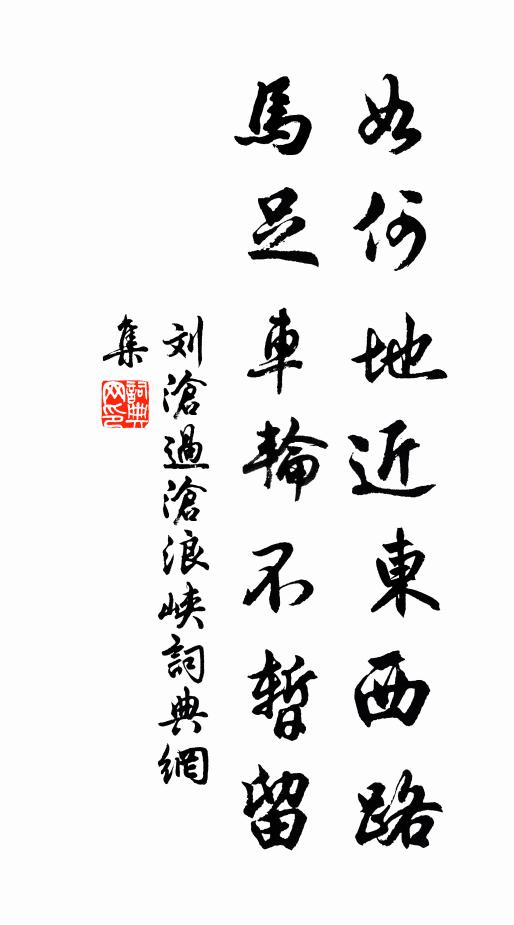 如何地近東西路
馬足車輪不暫留
刘滄過滄浪峡詞典網
集
詞典
网印